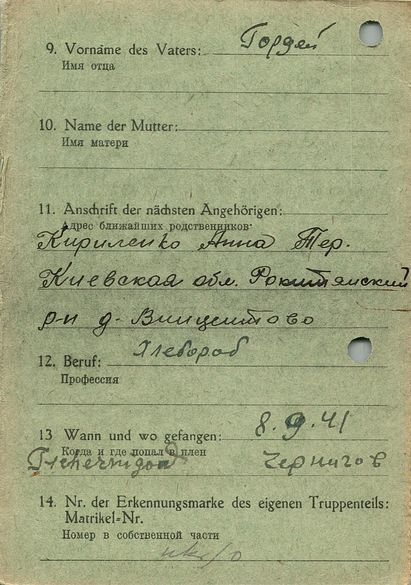 9. Vorname des Vaters: Гордей
Имя отца
10. Name der Mutter:
Имя матери
11. Anschrift der nächsten Angehörigen:
Адрес ближайших родственников:
Кириленко Анна Тер.
Киевская обл. Рокитянский
р-н д.
12. Beruf: Хлебороб
Профессия
13 Wann und wo gefangen: 8.9.41
Когда и где попал в плен
Tschernigow Чернигов
14. Nr. der Erkennungsmarke des eigenen Truppenteils:
Matrikel-Nr.
Номер в собственной части